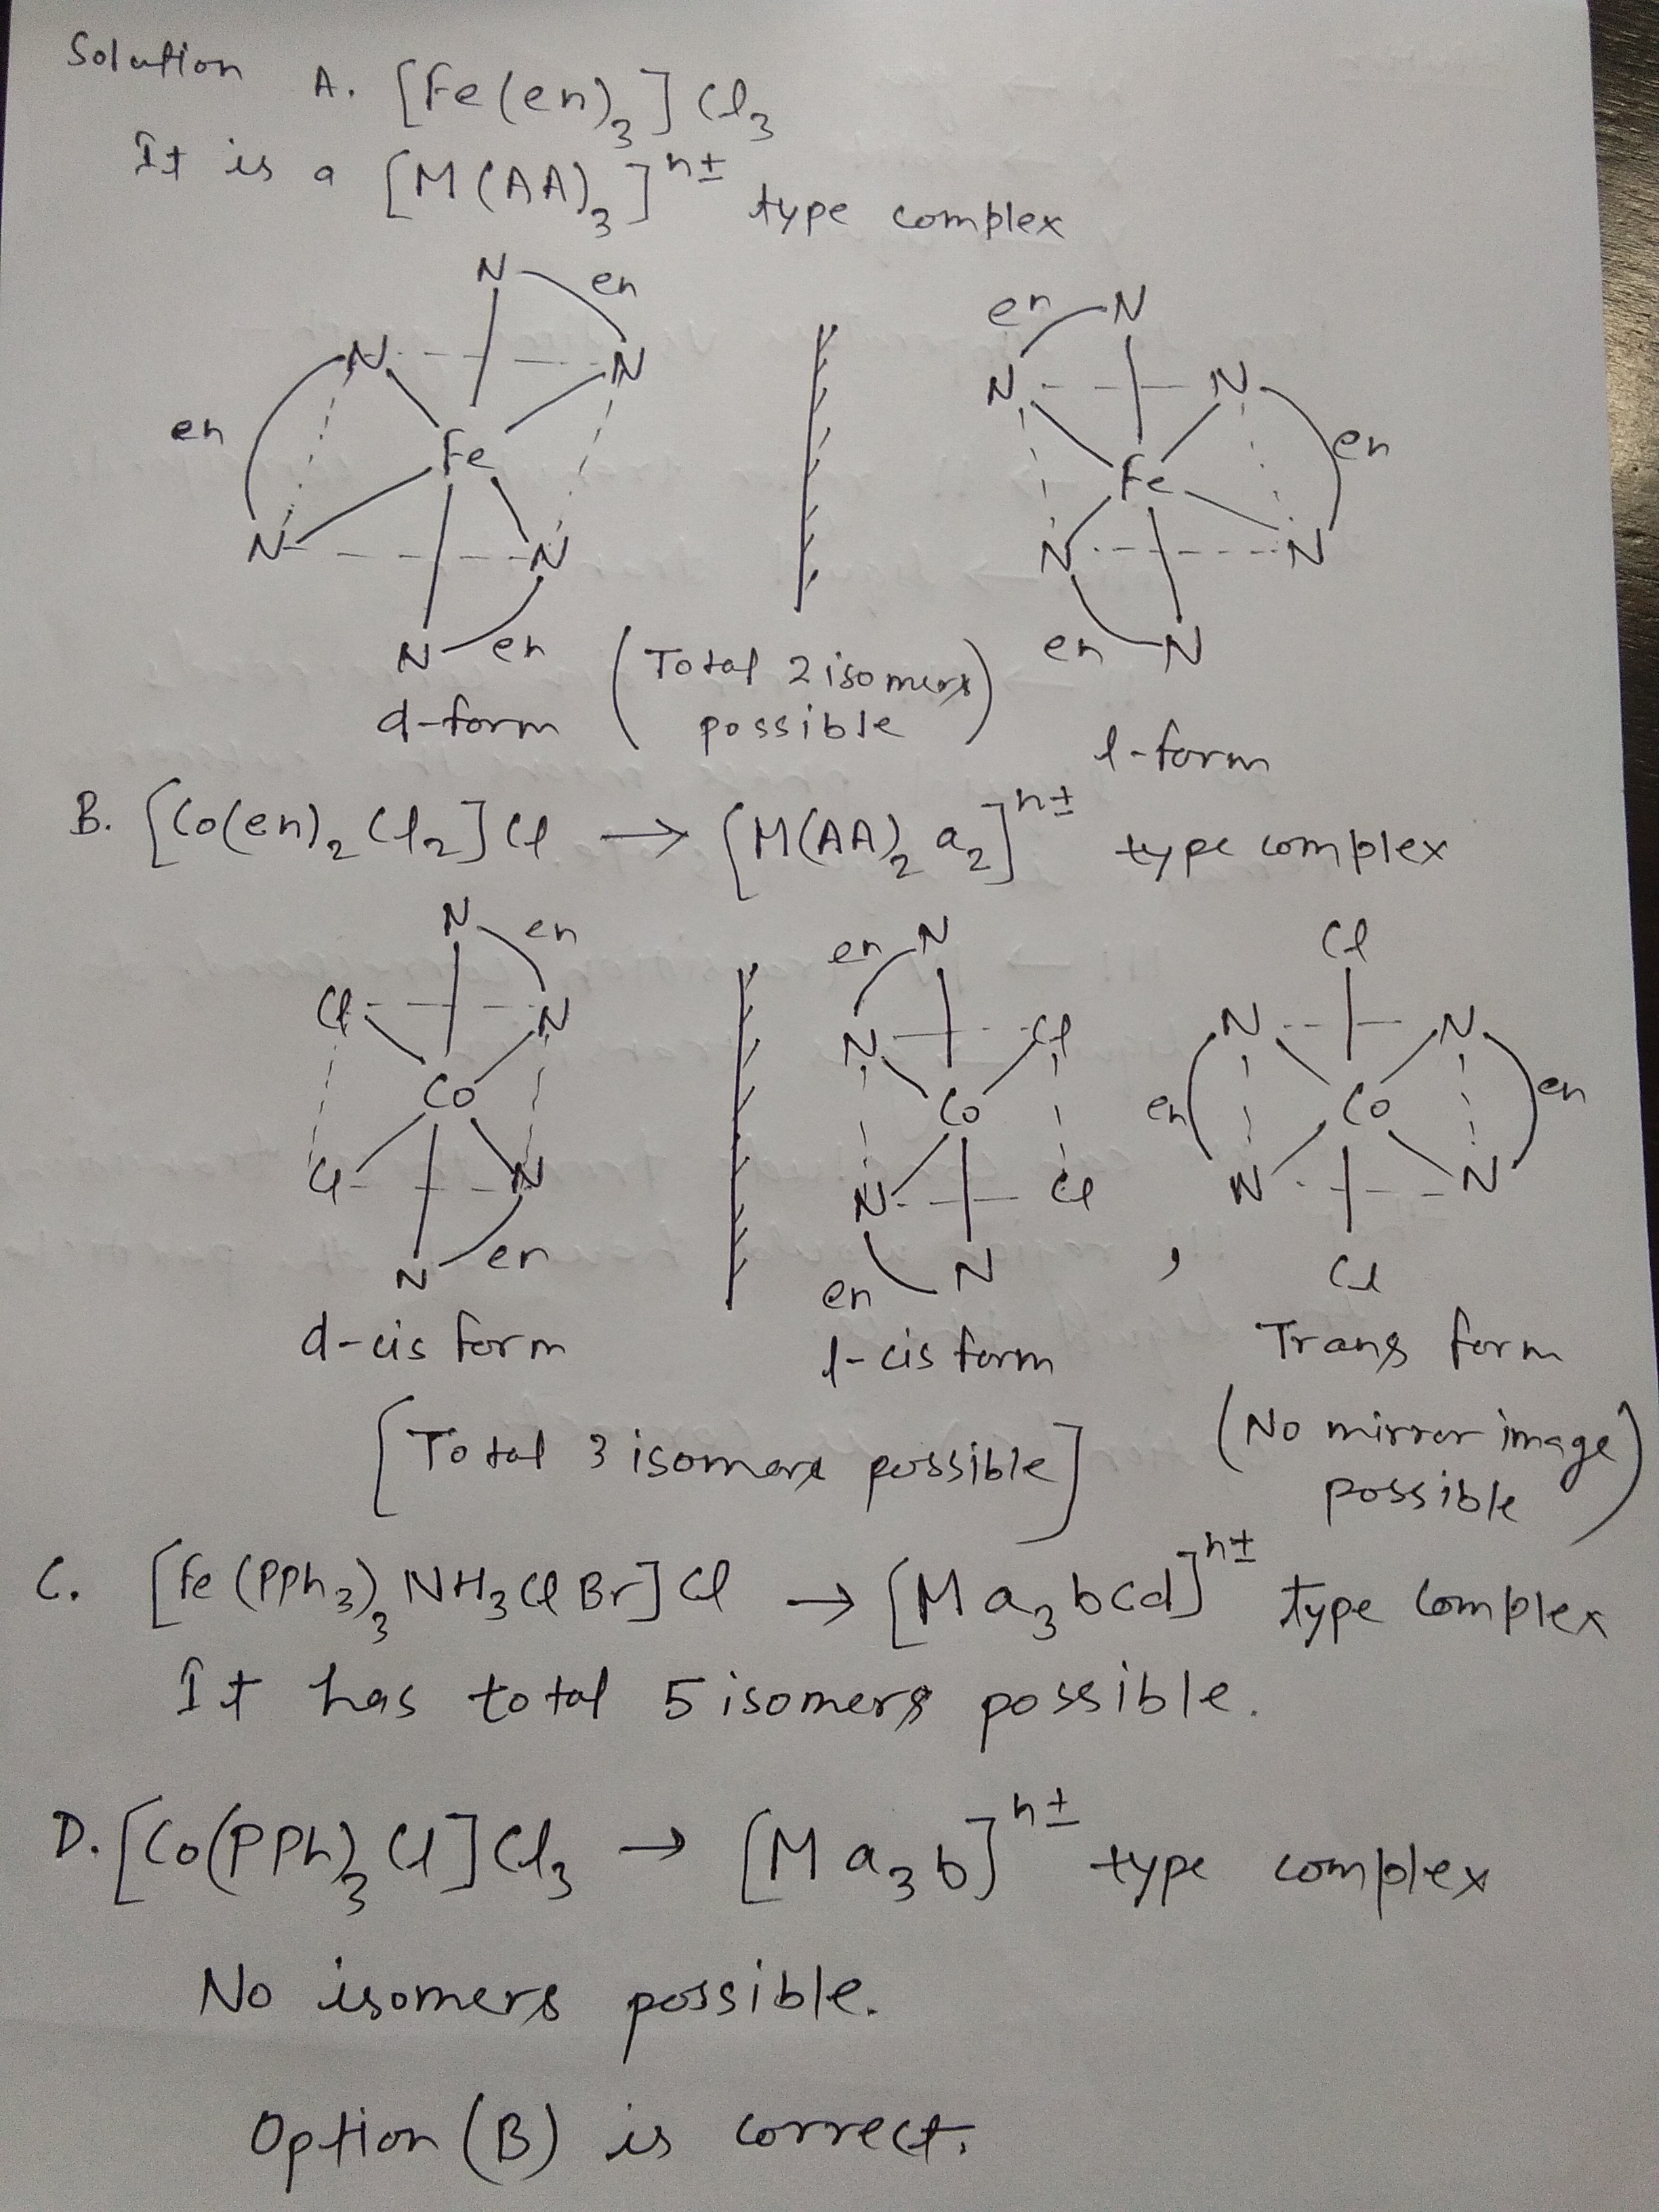 Solution A. [Fe(en)₃]Cl₃
It is a [M(AA)₃]ⁿ± type complex
N en en N
N N N N
en Fe Fe en
N N N N
N en en N
d-form (Total 2 isomers possible) l-form
B. [Co(en)₂Cl₂]Cl → [M(AA)₂a₂]ⁿ± type complex
N en en N Cl
Cl N N Cl N N
Co Co en Co en
Cl N N Cl N N
N en en N , Cl
d-cis form l-cis form Trans form
[Total 3 isomers possible] (No mirror image possible)
C. [Fe(PPh₃)₃NH₃ClBr]Cl → [Ma₃bcd]ⁿ± type complex
It has total 5 isomers possible.
D. [Co(PPh)₃Cl]Cl₃ → [Ma₃b]ⁿ± type complex
No isomers possible.
Option (B) is correct.